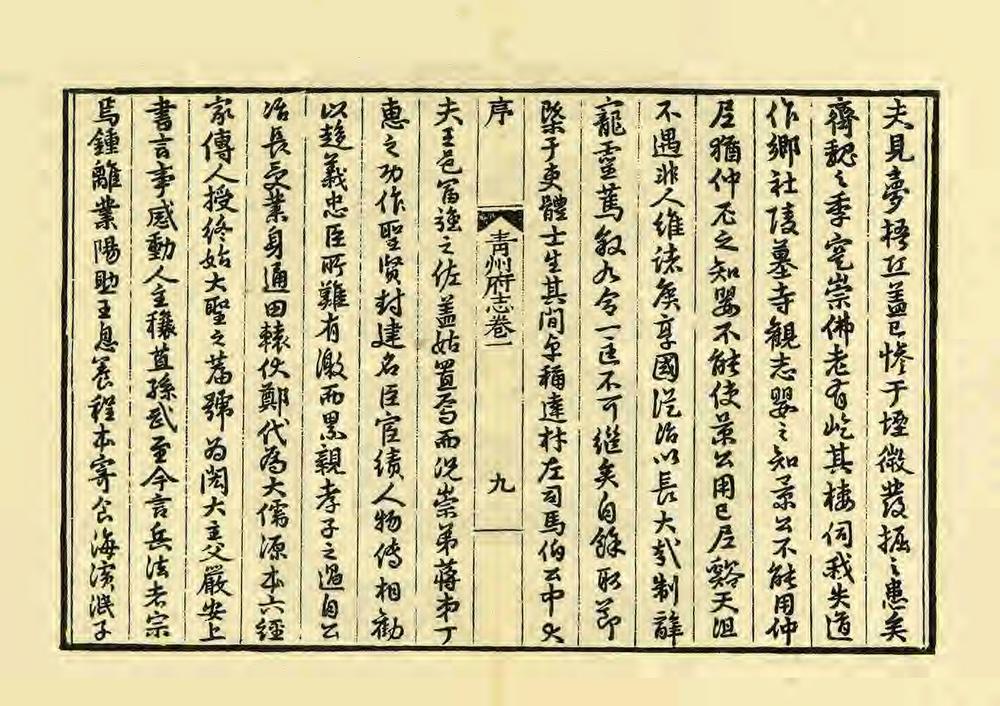 夫見夢梧丘蓋已慘于堙微發掘之患矣
齊魏之季寔崇佛老有屹其棲伺我失道
作鄉社陵墓寺觀志嬰之知景公不能用仲
尼猶仲尼之知嬰不能使景公用已尼谿天沮
不遇非人維諸侯享國從治以長大哉制辭
寵靈蔦敘九今一匡不可繼矣自餘取節
槩于吏體士生其間卓稱達材左司馬伯公中
序
青州府志卷一
九
夫王邑富強之佐蓋姑置焉而況崇弟蔣弟丁
惠之功作聖賢封建名臣宦績人物傳相勸
以趨義忠臣所難有激而累親孝子之過自公
冶長受業身通田轅伏鄭代為大儒源本六經
家傳人授終始大聖之舊號為閎大主父嚴安上
書言事感動人主穰苴孫武至今言兵法者宗
焉鍾離業陽助王息養程本寄食海濱泯子